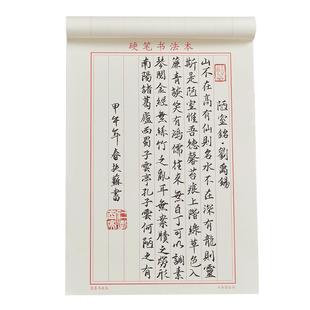 硬笔书法本
陋室銘·劉禹錫
山不在高有仙則名水不在深有龍則靈
斯是陋室惟吾德馨苔痕上階綠草色入
簾青談笑有鴻儒往來無白丁可以調素
琴閱金經無絲竹之亂耳無案牘之勞形
南陽諸葛廬西蜀子雲亭孔子雲何陋之有
甲午年春蘇書